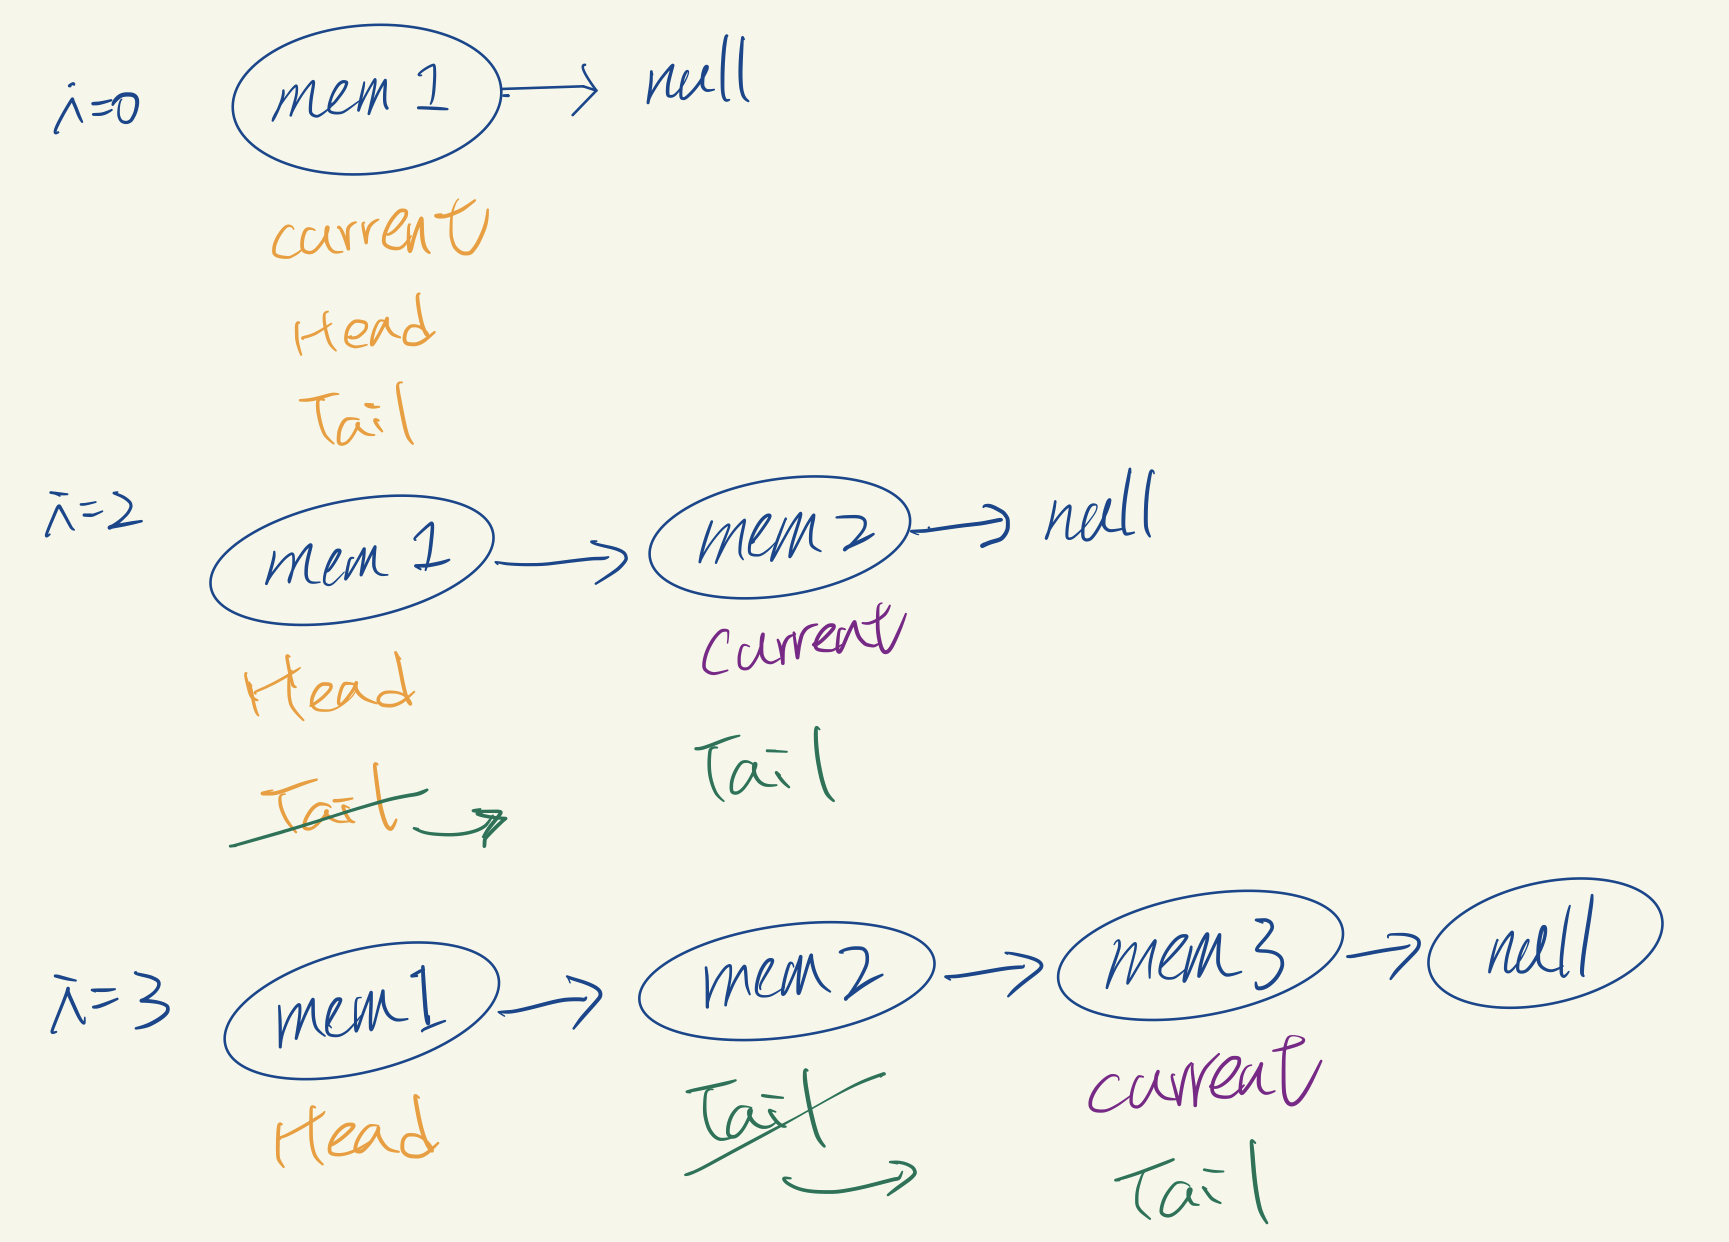 i=0 mem 1 null
current
Head
Tail
i=2 mem 1 mem 2 null
Head current
Tail Tail
i=3 mem 1 mem 2 mem 3 null
Head Tail current
Tail